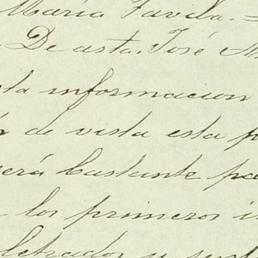 María Favela. =
De asta. José M
la informacion
de vista esta p
erá bastante pa
los primeros i
letrados y